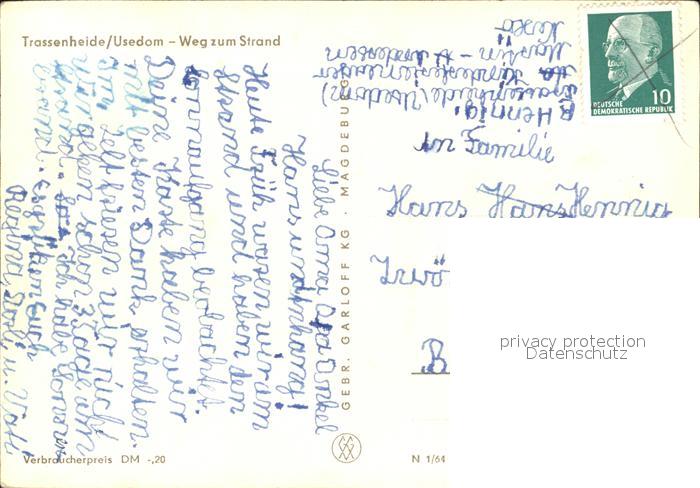 Trassenheide/Usedom – Weg zum Strand
Liebe Oma Opa Onkel
Hans und Hansi!
Heute Früh waren wir am
Strand und haben den
Sonnaufgang beobachtet.
Deine Karte haben wir
mit besten Dank erhalten.
Im Zelt frieren wir nicht
Wir gehen schon 3 Tage am
Strand. Ich habe Sonnen
brand. Es grüßen Euch
Regina, u. Vati
Verbraucherpreis DM -,20
GEBR. GARLOFF KG · MAGDEBURG
N 1/64
R Hennig
Trassenheide (Usedom)
Kinderferienlager
DEUTSCHE
DEMOKRATISCHE REPUBLIK
10
An Familie
Hans Hans Hennig
B
privacy protection
Datenschutz